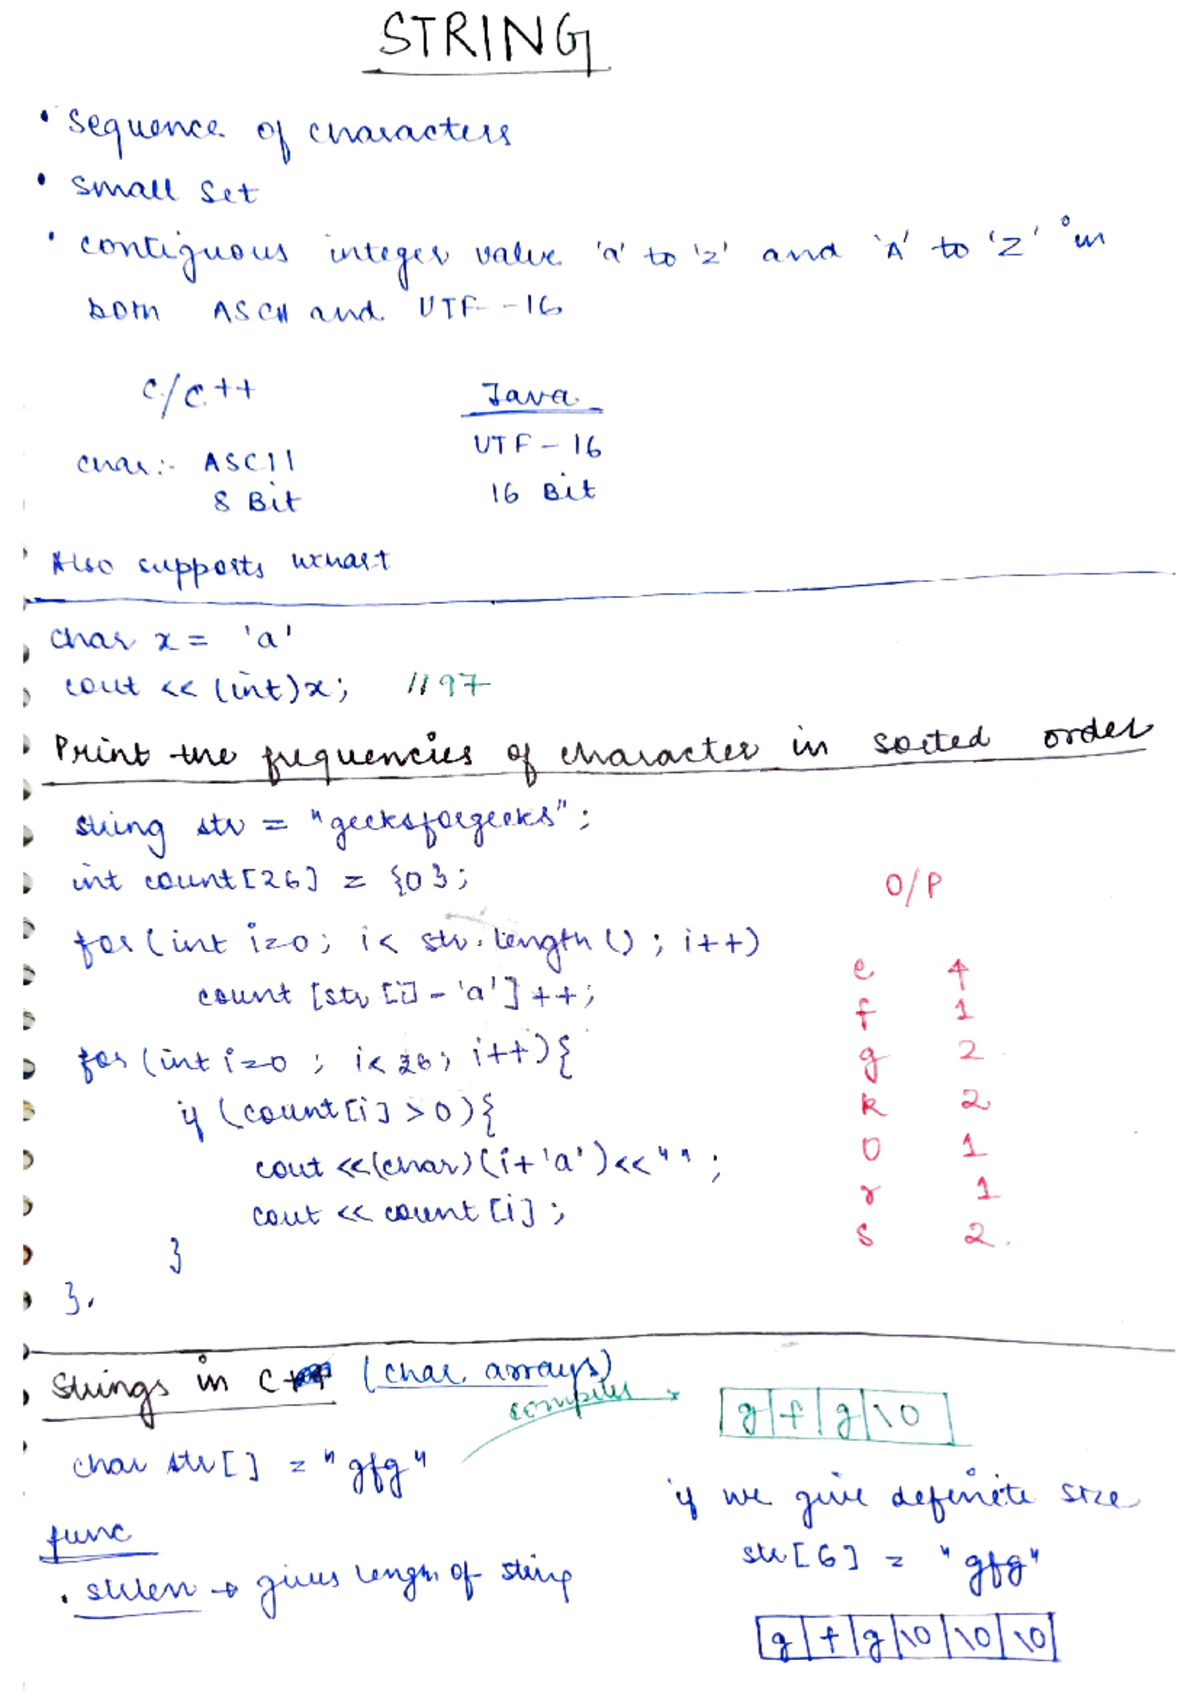 STRING
• Sequence of characters
• small set
• contiguous integer value 'a' to 'z' and 'A' to 'Z' in
both ASCII and UTF-16
C/C++ Java
char:- ASCII UTF-16
8 Bit 16 Bit
• Also supports
char x = 'a'
cout << (int)x; // 97
Print the frequencies of character in sorted order
string str = "geeksforgeeks";
int count[26] = {0};
for(int i=0; i< str.length(); i++)
count [str[i] - 'a']++;
for(int i=0; i<26; i++){
if (count[i] >0){
cout <<(char)(i+'a')<<" ";
cout << count[i];
}
}.
O/P
e 4
f 1
g 2
k 2
o 1
r 1
s 2.
Strings in C (char arrays)
char str[] = "gfg"
compiler → g f g \0
func
• strlen → gives length of string
if we give definite size
str[6] = "gfg"
g f g \0 \0 \0